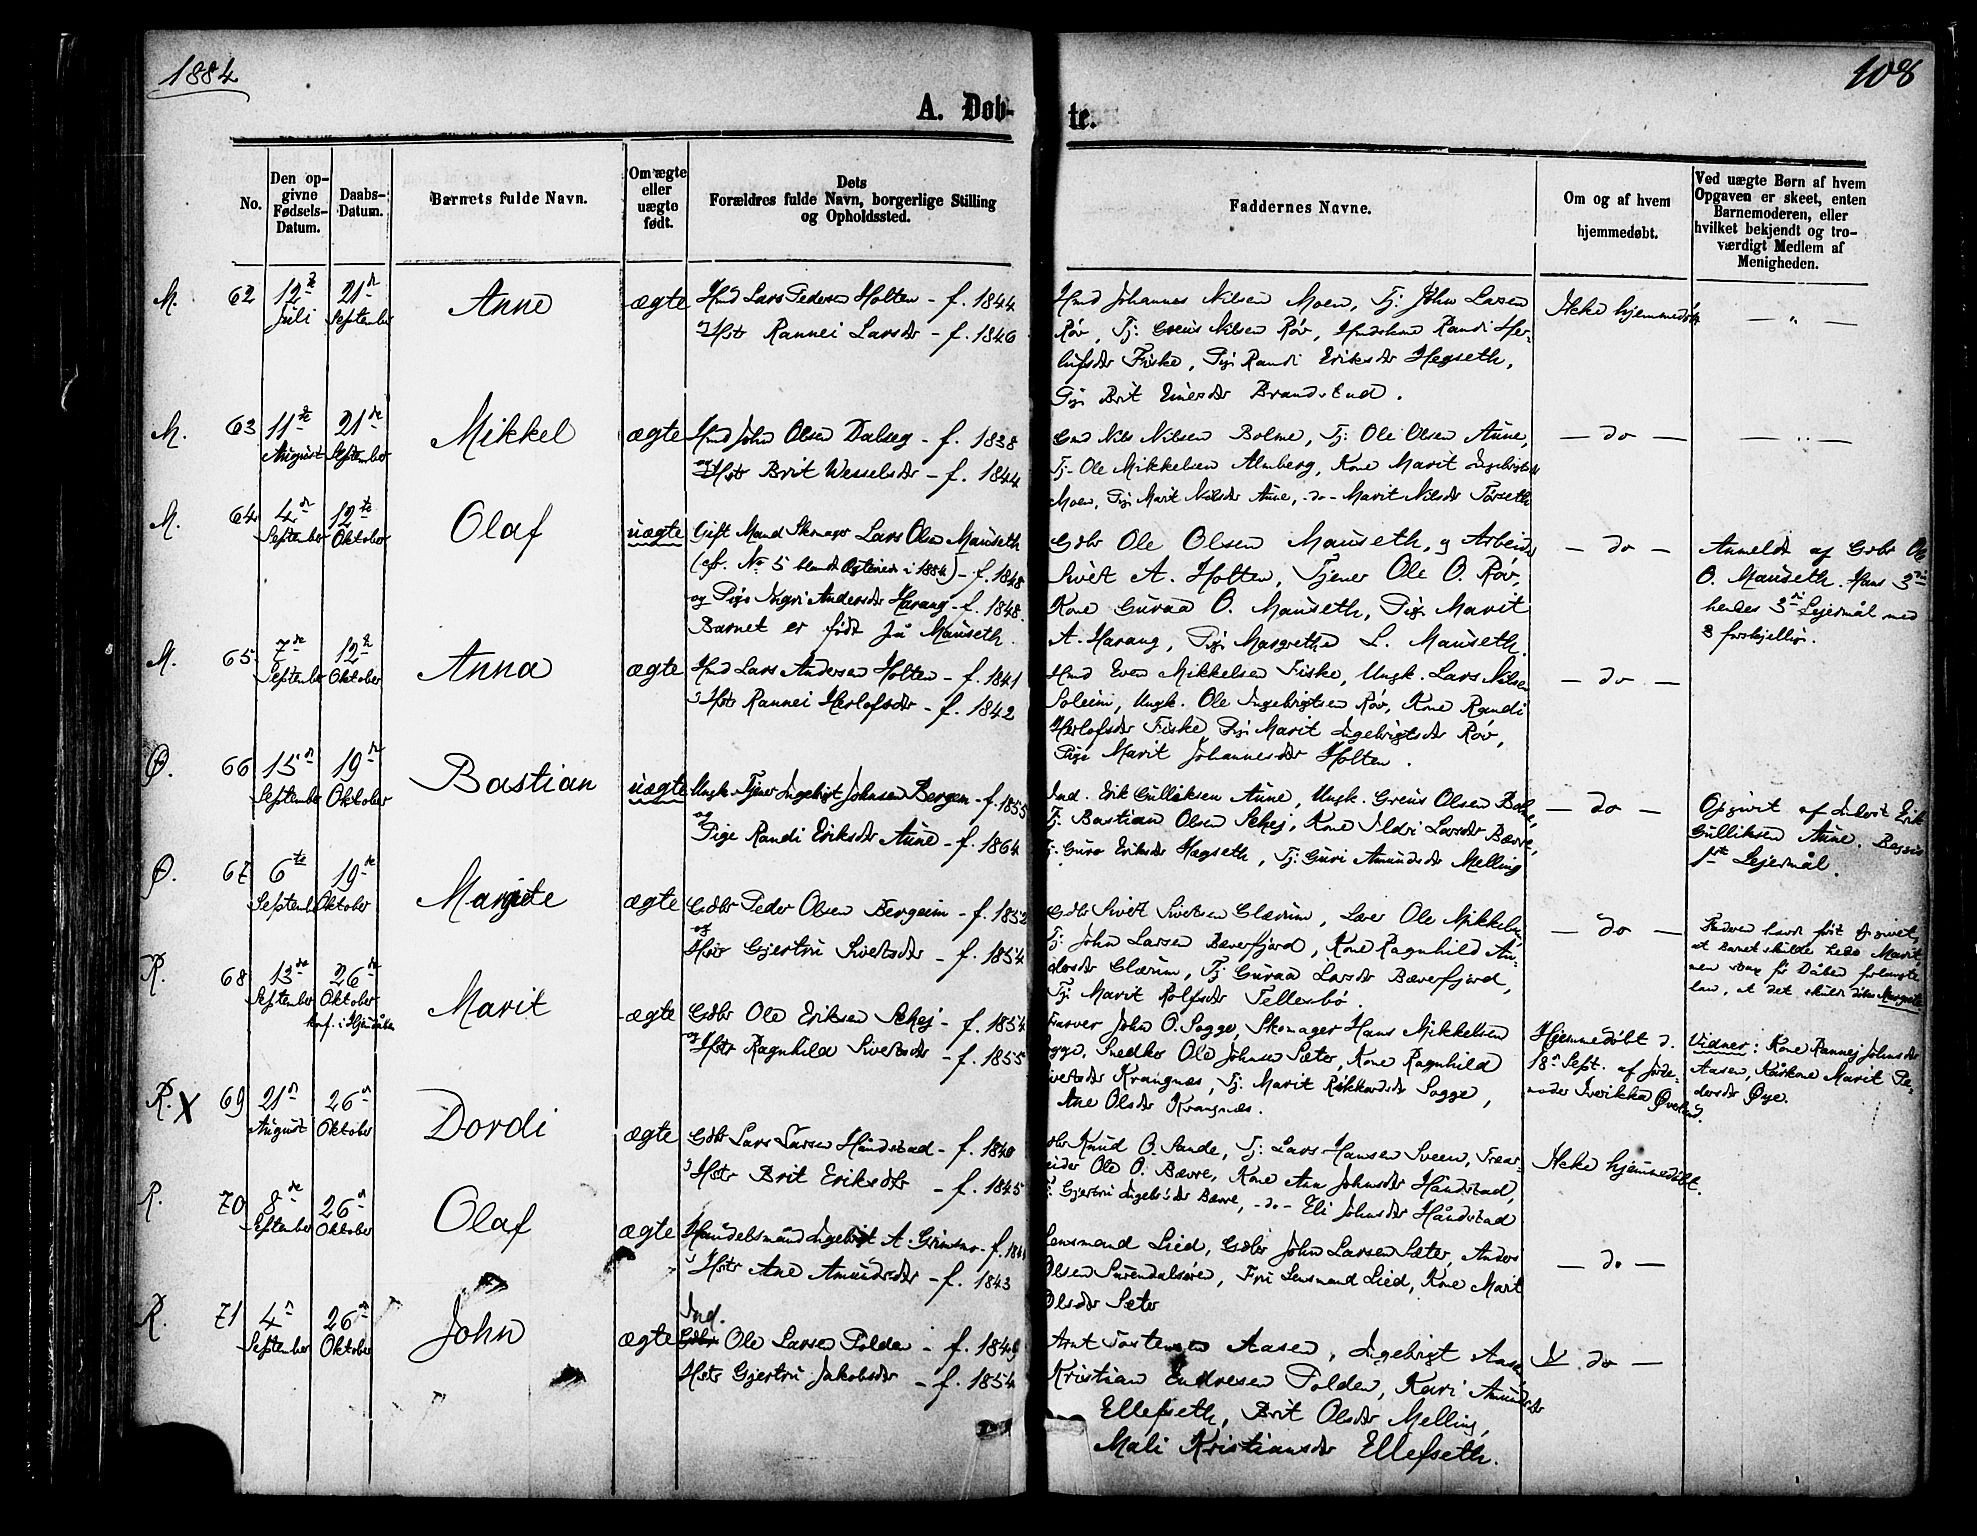 1884
108
A. Døb-
te.
No.
Den op-
givne
Fødsels-
Datum.
Daabs-
Datum.
Barnets fulde Navn.
Om ægte
eller
uægte
født.
Dets
Forældres fulde Navn, borgerlige Stilling
og Opholdssted.
Faddernes Navne.
Om og af hvem
hjemmedøbt.
Ved uægte Børn af hvem
Opgaven er skeet, enten
Barnemoderen, eller
hvilket bekjendt og tro-
værdigt Medlem af
Menigheden.
M. 62 12te Juli 21de September Anne ægte
Hmd Lars Pedersen Holten - f. 1844
Hstr Rannei Larsdr - f. 1846
Hmd Johannes Nilsen Moen, Tj: John Larsen
Røv, Tj: Greus Nilsen Røv, Hmdskone Randi Her-
lufsdr Fiske, Pig: Randi Eriksdr Hegseth,
Pig: Brit Einersdr Brandstad.
Ikke hjemmedøbt
— " —
M. 63 11te August 21de September Mikkel ægte
Hmd John Olsen Dalseg - f. 1838
og Hstr Brit Wesselsdr - f. 1844
Gmd Nils Nilsen Bolme, Tj: Ole Olsen Aune,
Tj- Ole Mikkelsen Almberg, Kone Marit Ingebrigtsdr
Moen, Pig: Marit Nilsdr Aune, -do- Marit Nilsdr Torseth
— do —
— " —
M. 64 4de September 12te Oktober Olaf uægte
Gift Mand Skomager Lars Olsen Mauseth
(cfr. No 5 blandt Ægteviede i 1884) - f. 1848
og Pige Ingri Andersdr Harang - f. 1848.
Barnet er født på Mauseth.
Gdbr Ole Olsen Mauseth, og Arbeider
Sivert A. Holten, Tjener Ole O. Røv,
Kone Guraa O. Mauseth, Pig: Marit
A. Harang, Pig: Margrethe L. Mauseth.
— do —
Anmeldt af Gdbr Ole
O. Mauseth. Hans 3die
hendes 3die Lejermål med
3 forskjellige.
M. 65 7de September 12te Oktober Anna ægte
Hmd Lars Andersen Holten - f. 1841
Hstr Rannei Herlofsdr - f. 1842
Hmd Even Mikkelsen Fiske, Ungk. Lars Nilsen
Soleim, Ungk. Ole Ingebrigtsen Røv, Kone Randi
Herlofsdr Fiske, Pig: Marit Ingebrigtsdr Røv,
Pige Marit Johannesdr Holten.
— do —
Ø. 66 15de September 19de Oktober Bastian uægte
Ungk. Tjener Ingebrigt Johnsen Bergem - f. 1855
og Pige Randi Eriksdr Aune - f. 1864
Ind. Erik Gulliksen Aune, Ungk. Greus Olsen Bolme,
Tj: Bastian Olsen Skej, Kone Ildri Larsdr Bævre,
Tj: Guro Eriksdr Hægseth, Tj: Guri Amundsdr Melling
— do —
Opgivet af Inderst Erik
Gulliksen Aune. Begges
1ste Lejermål.
Ø. 67 6te September 19de Oktober Margrete ægte
Gdbr Peder Olsen Bergeim - f. 1852
og Hstr Gjertru Sivertsdr - f. 1854
Gdbr Sivert Sivertsen Glærum, Lærer Ole Mikkelsen,
Tj: John Larsen Bæverfjord, Kone Ragnhild An-
dersdr Glærum, Tj: Guraa Larsdr Bæverfjord,
Tj: Marit Rolfsdr Tellesbø.
— do —
Faderen havde først opgivet,
at Barnet skulde hede Marit,
men strax før Dåben forlangte
han, at det skulde døbes Margrete
R. 68 13de September 26de Oktober Marit ægte
Gdbr Ole Eriksen Skej - f. 1854
og Hstr Ragnhild Sivertsdr - f. 1855
Farver John O. Sogge, Skomager Hans Mikkelsen
Sogge, Snedker Ole Johnsen Sæter, Kone Ragnhild
Sivertsdr Krangnæs, Tj: Marit Rikkardsdr Sogge,
Ane Olsdr Krangnæs.
Hjemmedøbt d.
18de Sept. af Jorde-
moder Sverikka Øverland.
Vidner: Kone Rannej Johnsdr
Aasen, Kårkone Marit Pe-
dersdr Øye.
R. X 69 21de August 26de Oktober Dordi ægte
Gdbr Lars Larsen Håndstad - f. 1840
Hstr Brit Eriksdtr - f. 1845
Gdbr Knud O. Sande, Tj: Lars Hansen Sveen, Træar-
beider Ole O. Bævre, Kone Ann Johnsdr Håndstad,
Tj: Gjertru Ingebr.dr Bævre, -do- Eli Johnsdr Håndstad
Ikke hjemmedøbt.
R. 70 8de September 26de Oktober Olaf ægte
Handelsmand Ingebrigt A. Grimsmo - f.
Hstr Ane Amundsdr - f. 1843
Lensmand Lied, Gdbr John Larsen Sæter, Anders
Olsen Surendalsøren, Fru Lensmand Lied, Kone Marit
Olsdr Sæter
— do —
R. 71 4de September 26de Oktober John ægte
Ind.
Gdbr Ole Larsen Polden - f. 1849
Hstr Gjertru Jakobsdr - f. 1854
Arnt Torstensen Aasen, Ingebrigt Aasen
Kristian Endresen Polden, Kari Amundsdr
Ellefseth, Brit Olsdr Melling,
Mali Kristiansdr Ellefseth.
— do —